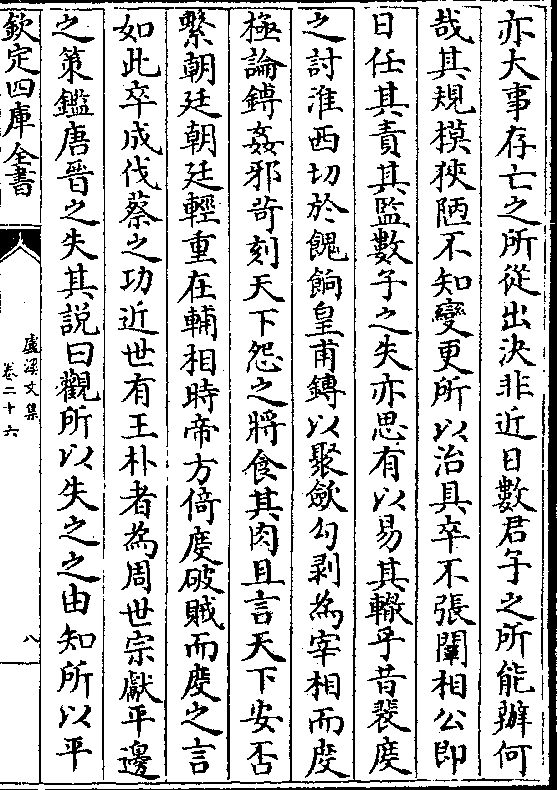 亦大事存亡之所從出決非近日數君子之所能辦何
哉其規模狹陋不知變更所以治具卒不張闡相公即
日任其責其監數子之失亦思有以易其轍乎昔裴度
之討淮西切於餽餉皇甫鎛以聚斂勾剥為宰相而度
極論鎛姦邪苛刻天下怨之將食其肉且言天下安否
繫朝廷朝廷輕重在輔相時帝方倚度破賊而度之言
如此卒成伐蔡之功近世有王朴者為周世宗獻平邊
之策鑑唐晉之失其説曰觀所以失之之由知所以平
欽定四庫全書
盧溪文集
卷二十六
八